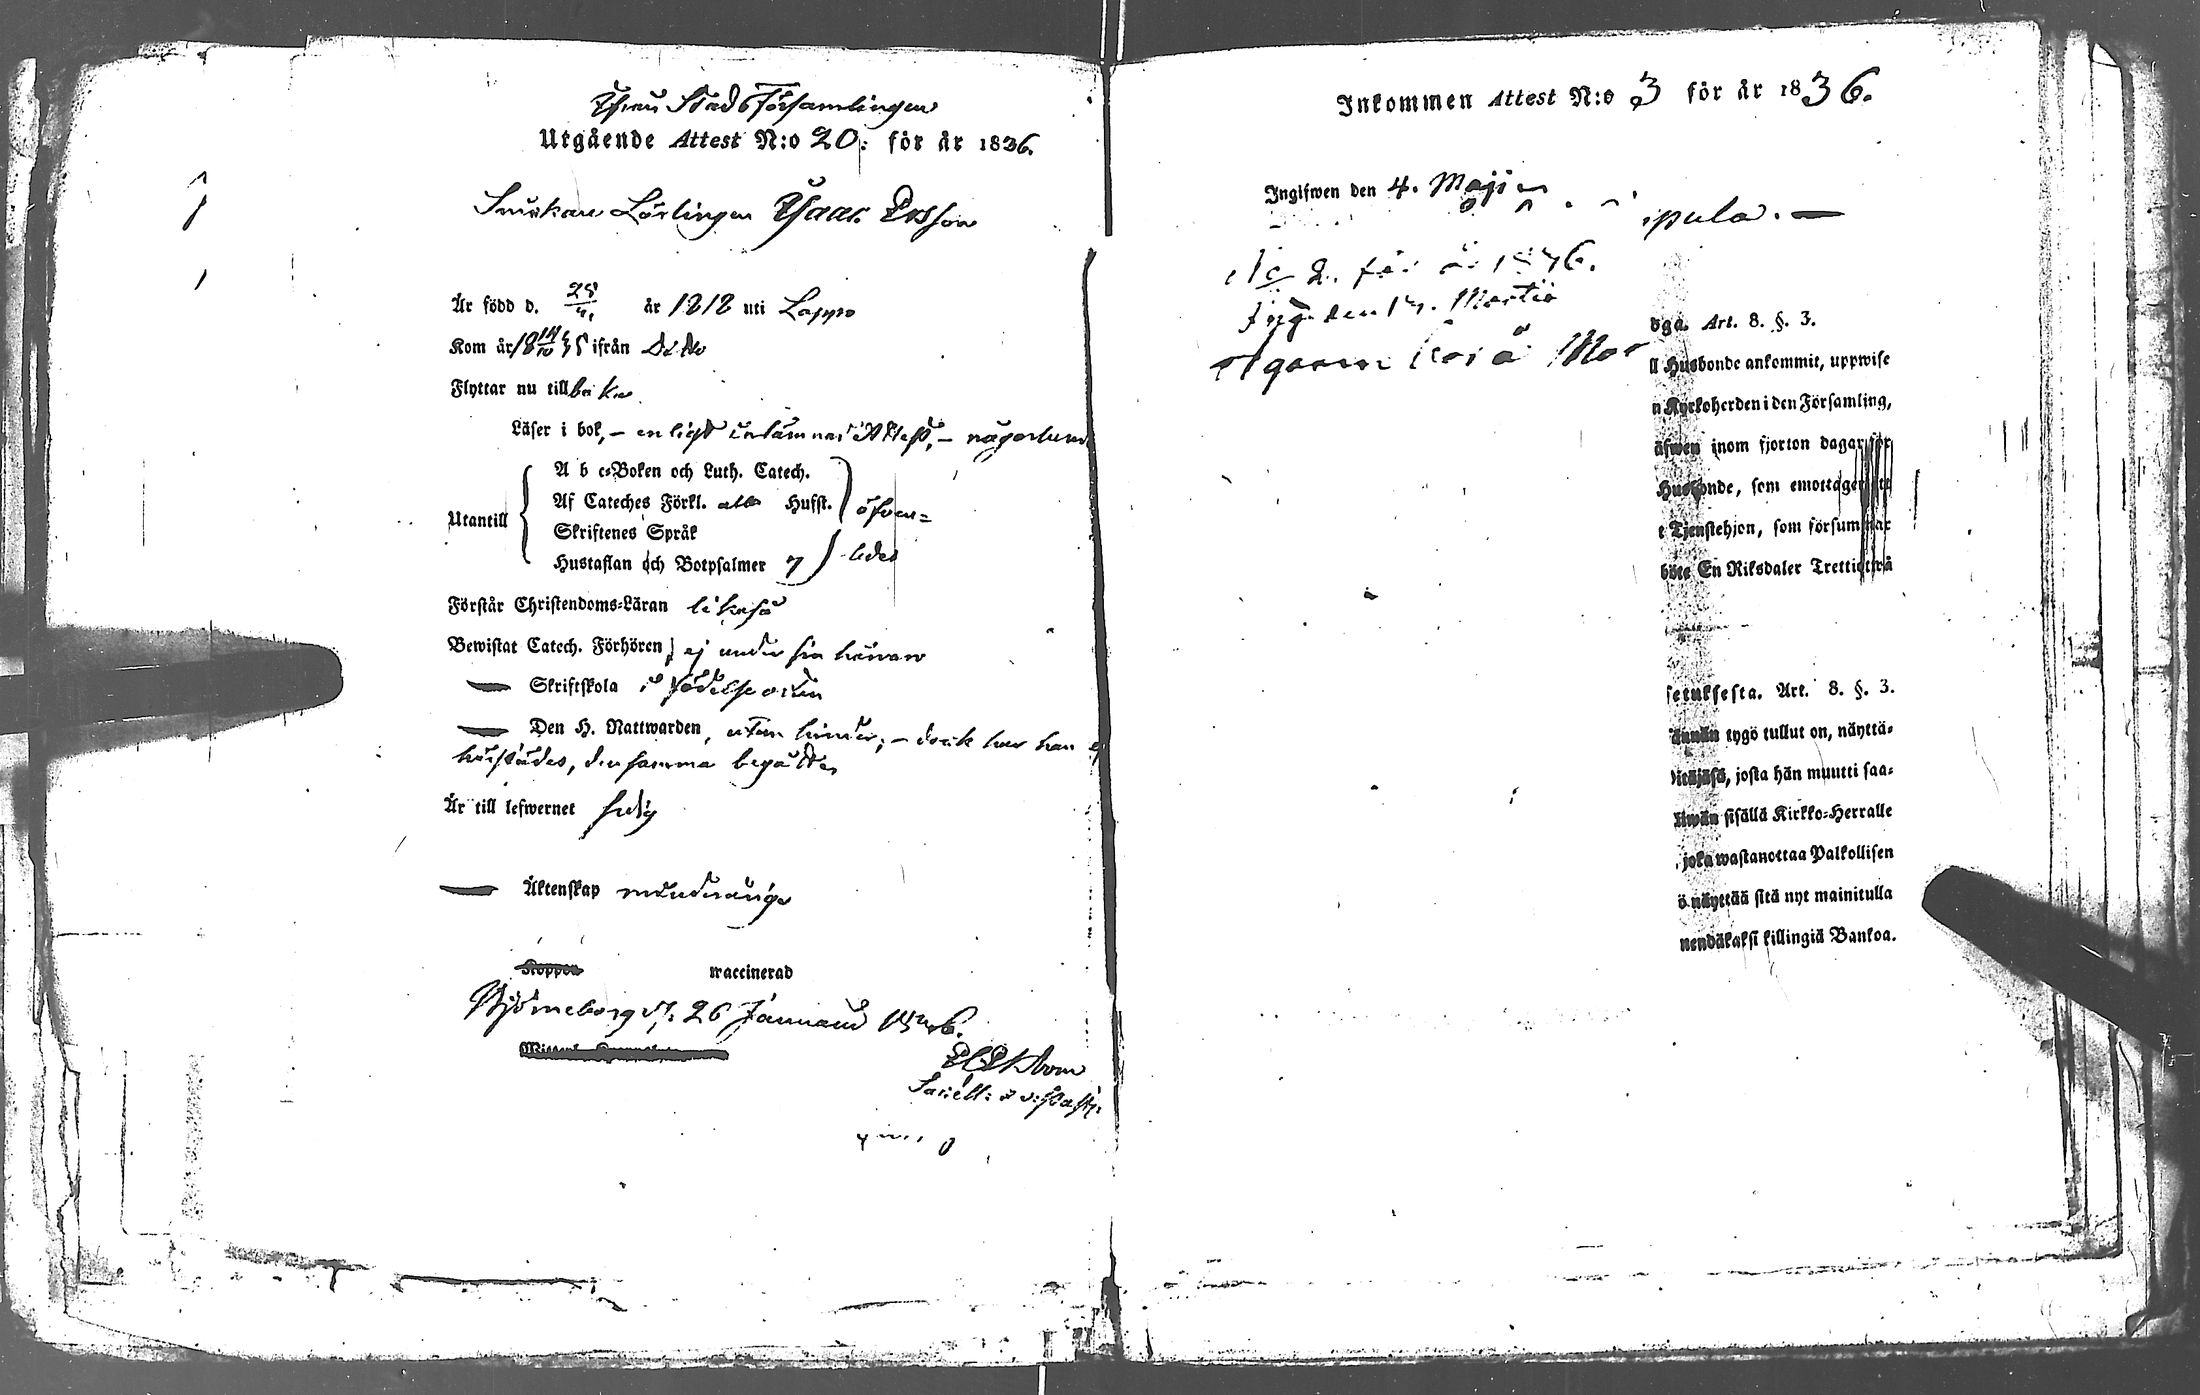 Ifrån Stads Församlingen
Utgående Attest N:o 20. för år 1836.
Snickare Lärlingen Isaac Ersson
År född d. 28/4 år 1818 uti Lappo
Kom år 18 14/10 35 ifrån Dito
Flyttar nu tillbaka
Läser i bok, – enligt inlämnad Attest, – någorlunda
A b c-Boken och Luth. Catech.
Af Cateches Förkl. alla Hufst.
Utantill
Skriftenes Språk
Hustaflan och Botpsalmer 7
öfven=
ledes
Förstår Christendoms-Läran likaså
Bewistat Catech. Förhören, ej under sin härvaro
— Skriftskola i födelseorten
— Den H. Nattwarden, utan hinder; – dock har han ej
härstädes, densamma begått
Är till lefwernet frdig
— Äktenskap minderårig
Koppor waccinerad
Björneborg d. 26 Januarii 1836.
Inkommen Attest N:o 3 för år 1836.
Ingifwen den 4. Maji
No 2. för år 1836.
Ing. den Martii
dga. Art. 8. §. 3.
ll Husbonde ankommit, uppwise
n Kyrkoherden i den Församling,
äfwen inom fjorton dagar för
Husbonde, som emottager ett
t Tjenstehjon, som försummar
böte En Riksdaler Trettiotwå
setuksesta. Art. 8. §. 3.
tygö tullut on, näyttä-
josta hän muutti saa-
sisällä Kirkko-Herralle
, joka wastanottaa Palkollisen
ö näyttää sitä nyt mainitulla
nendäkaksi killingiä Bankoa.